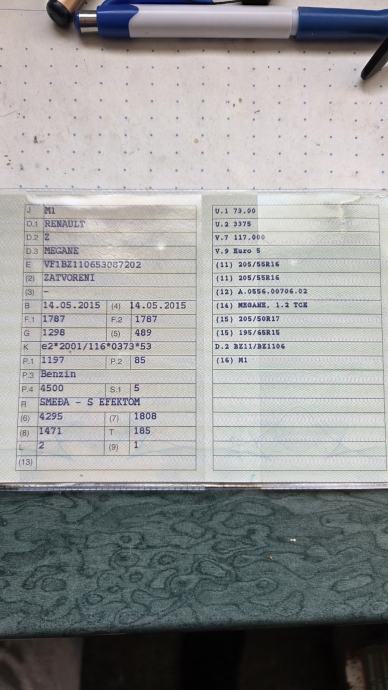 J M1
D.1 RENAULT
D.2 Z
D.3 MEGANE
E VF1BZ110653087202
(2) ZATVORENI
(3) –
B 14.05.2015 (4) 14.05.2015
F.1 1787 F.2 1787
G 1298 (5) 489
K e2*2001/116*0373*53
P.1 1197 P.2 85
P.3 Benzin
P.4 4500 S.1 5
R SMEĐA – S EFEKTOM
(6) 4295 (7) 1808
(8) 1471 T 185
L 2 (9) 1
(13)
U.1 73.00
U.2 3375
V.7 117.000
V.9 Euro 5
(11) 205/55R16
(11) 205/55R16
(12) A.0556.00706.02
(14) MEGANE, 1.2 TCE
(15) 205/50R17
(15) 195/65R15
D.2 BZ11/BZ1106
(16) M1